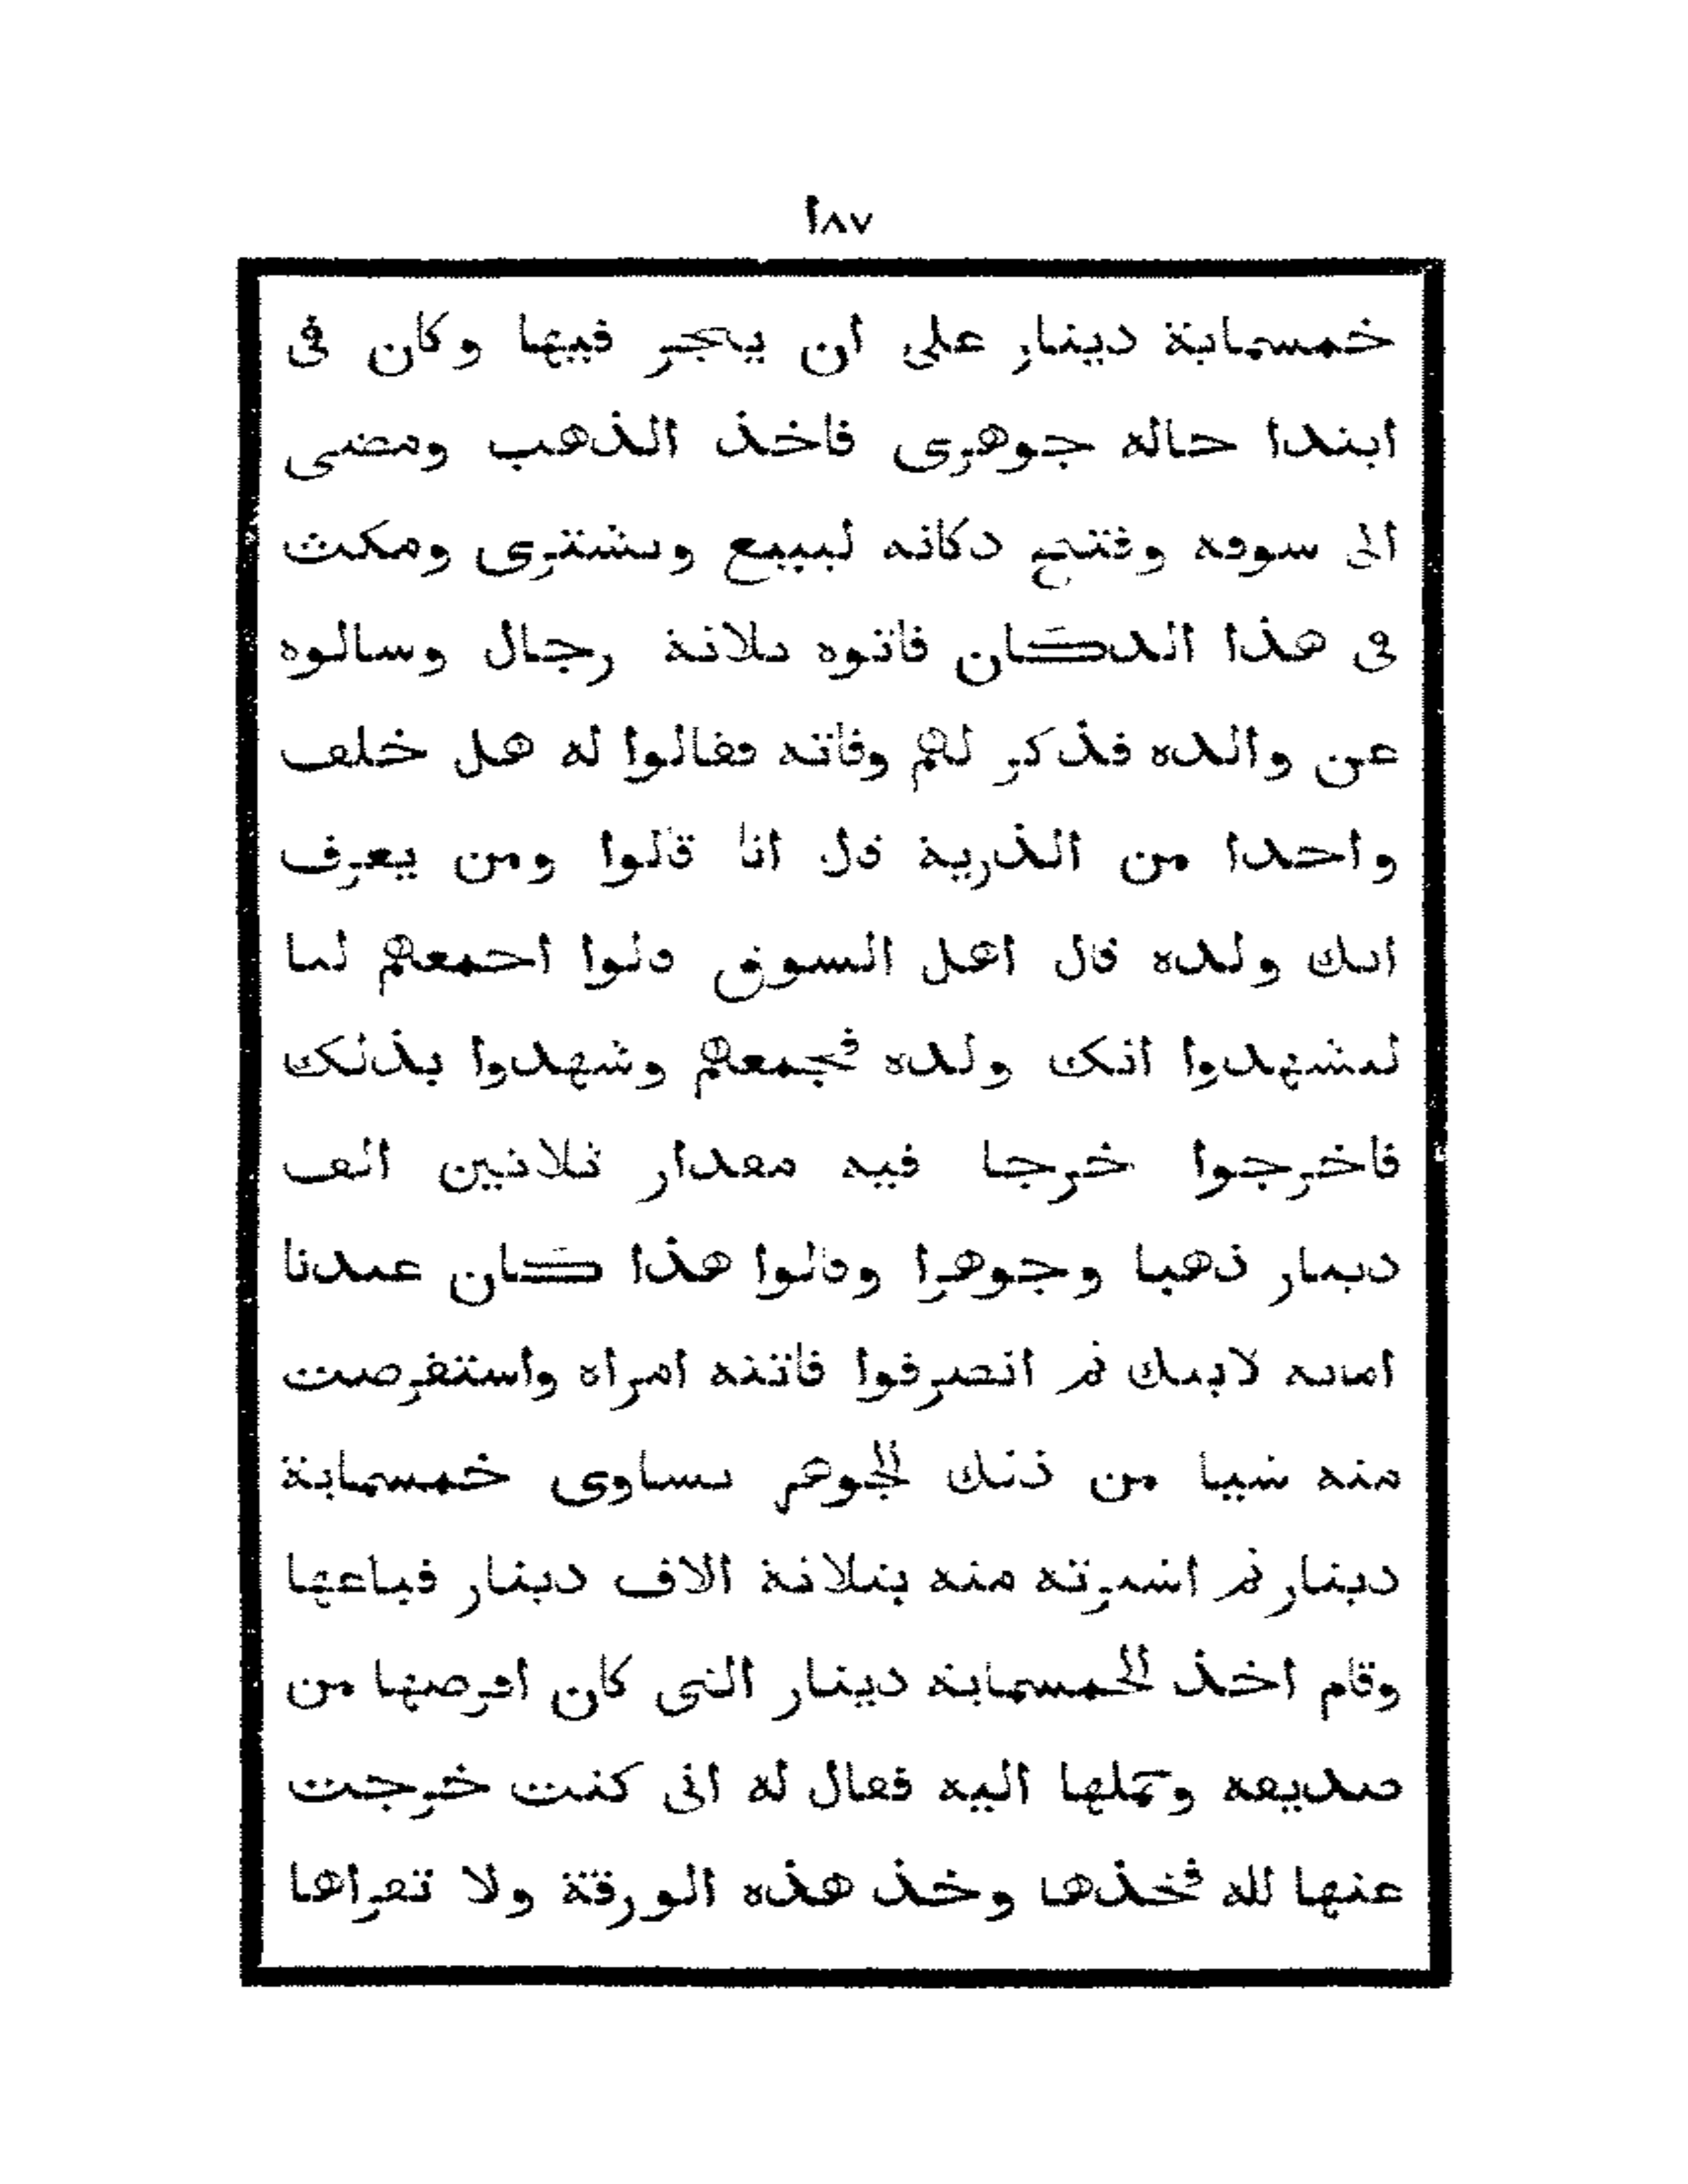 ١٨٧
خمسماية دينار على ان يتجر فيها وكان فى
ابتدا حاله جوهرى فاخذ الذهب ومضى
الى سوقه وفتح دكانه ليبيع ويشترى ومكث
فى هذا الدكان فاتوه ثلاثة رجال وسالوه
عن والده فذكر لهم وفاته فقالوا له هل خلف
واحدا من الذرية قال انا قالوا ومن يعرف
انك ولده قال اهل السوق قالوا اجمعهم لنا
ليشهدوا انك ولده فجمعهم وشهدوا بذلك
فاخرجوا خرجا فيه مقدار ثلاثين الف
دينار ذهبا وجوهرا وقالوا هذا كان عندنا
امانه لابيك ثم انصرفوا فاتته امراة واستقرضت
منه شيا من ذلك الجوهر يساوى خمسماية
دينار ثم اشترته منه بثلاثة الاف دينار فباعها
وقام اخذ الخمسماية دينار التى كان اقرضها من
صديقه وحملها اليه فقال له انى كنت خرجت
عنها لله فخذها وخذ هذه الورقة ولا تقراها